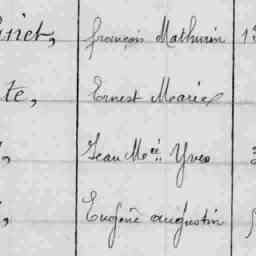 inet, françois Mathurin 1
te, Ernest Marie
Jean Mie Yves
Eugène augustin